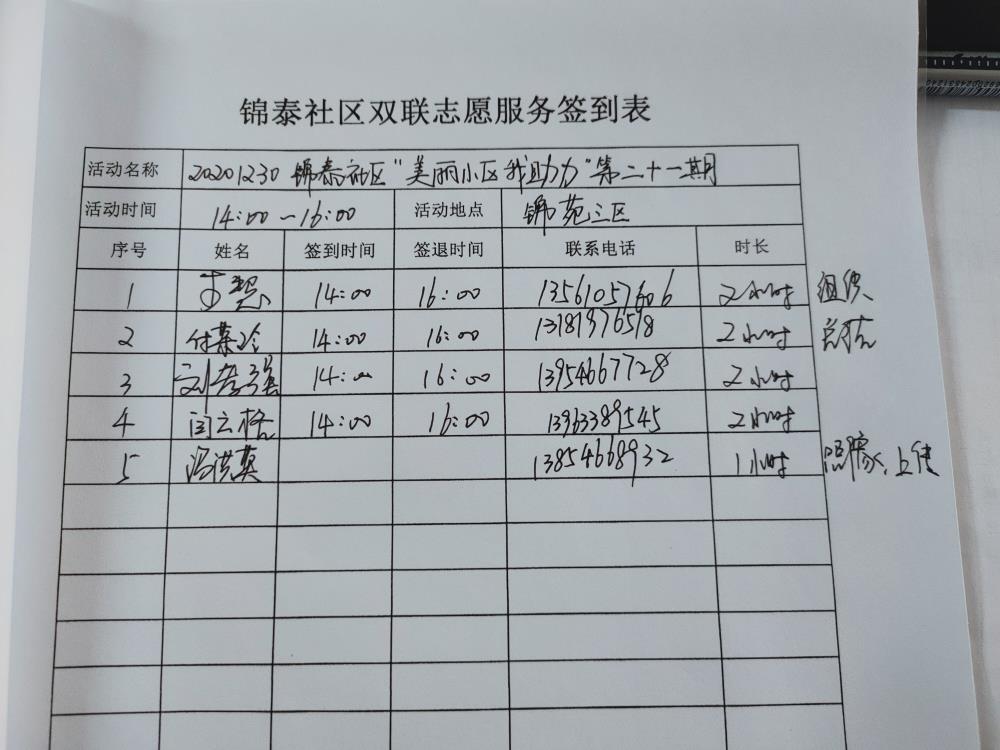 锦泰社区双联志愿服务签到表
活动名称 20201230 锦泰社区"美丽小区我助力"第二十一期
活动时间 14:00-16:00 活动地点 锦苑三区
序号 姓名 签到时间 签退时间 联系电话 时长
1 14:00 16:00 13561057606 2小时 组织
2 付慕玲 14:00 16:00 13181976518 2小时
3 刘孝强 14:00 16:00 13954667728 2小时
4 闫云格 14:00 16:00 13963389545 2小时
5 冯洪英 13854668932 1小时 上传